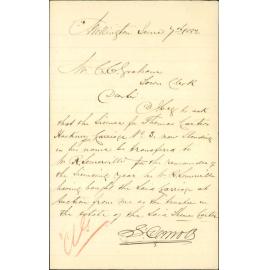 Wellington June 7th 1882
Mr C. C. Graham
Town Clerk
Dunedin
I beg to ask
that the license for Thomas Carter
Hackney Carriage No 3. now standing
in his name be transferred to
W. R. Somerville for the remainder of
the licensing year as Mr Somerville
having bought the said carriage at
auction from me as the trustee in
the estate of the said Thomas Carter